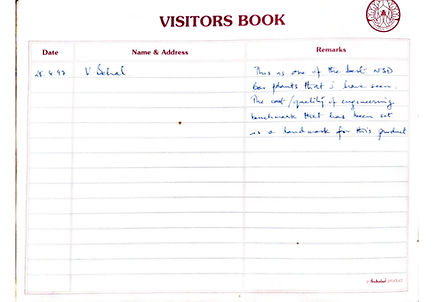 VISITORS BOOK
Date Name & Address Remarks
28.4.97 V Sehal This is one of the best NSD
Gas plants that i have seen.
The cost/quality of engineering
benchmark that has been set
is a landmark for this product
PRODUCT